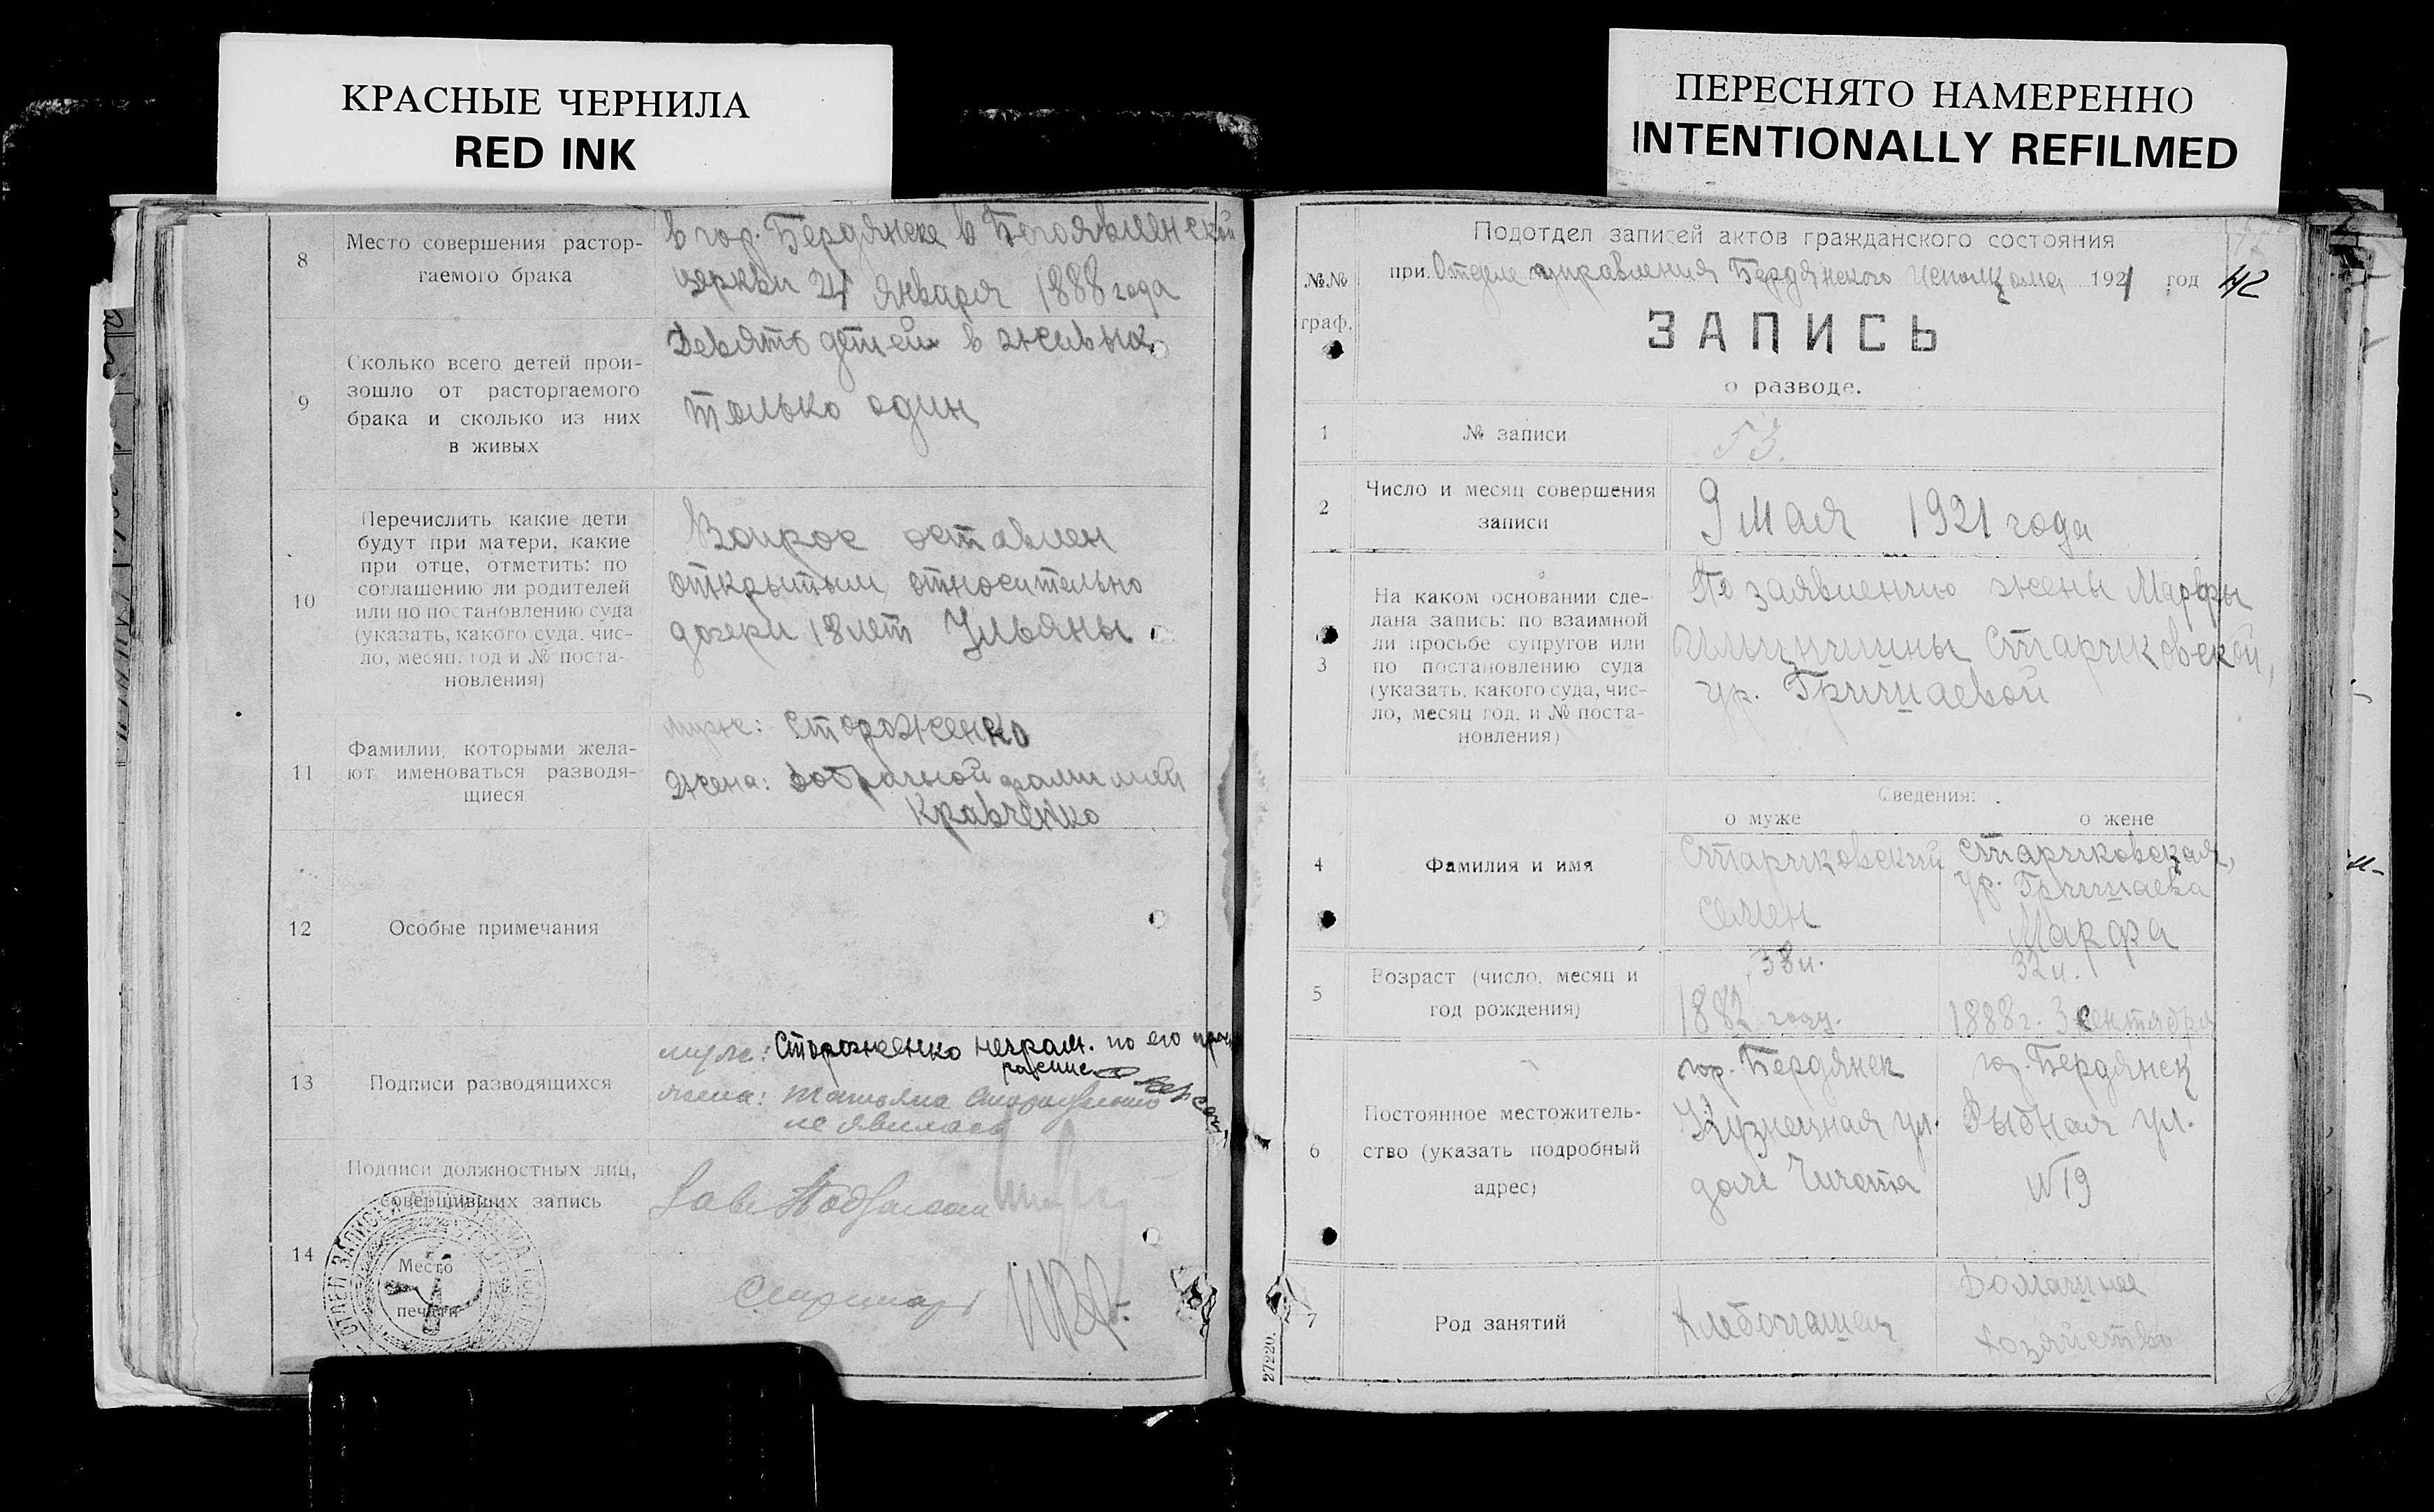 КРАСНЫЕ ЧЕРНИЛА
RED INK
ПЕРЕСНЯТО НАМЕРЕННО
INTENTIONALLY REFILMED
8
Место совершения растор-
гаемого брака
в гор. Бердянске в Богоявленской
церкви 24 января 1888 года
9
Сколько всего детей прои-
зошло от расторгаемого
брака и сколько из них
в живых
Девять детей в живых
только один
10
Перечислить какие дети
будут при матери, какие
при отце, отметить: по
соглашению ли родителей
или по постановлению суда
(указать, какого суда, чис-
ло, месяц, год и № поста-
новления)
Вопрос оставлен
открытым относительно
дочери 18 лет Ульяны
11
Фамилии, которыми жела-
ют именоваться разводя-
щиеся
муж: Стороженко
Жена: добрачной фамилией
Кравченко
12
Особые примечания
13
Подписи разводящихся
муж: Стороженко неграм. по его
жена: Татьяна Стороженко
не явилась
14
Подписи должностных лиц,
совершивших запись
Место
печати
Зав. Подотделом
Секретарь
Подотдел записей актов гражданского состояния
№№
граф.
при Отделе управления Бердянского Исполкома 1921 год
42
ЗАПИСЬ
о разводе.
1
№ записи
53.
2
Число и месяц совершения
записи
9 мая 1921 года
3
На каком основании сде-
лана запись: по взаимной
ли просьбе супругов или
по постановлению суда
(указать, какого суда, чис-
ло, месяц год, и № поста-
новления)
По заявлению жены Марфы
Ильиничны Стариковской,
ур. Гричаевой
Сведения:
о муже
о жене
4
Фамилия и имя
Стариковский
Семен
Стариковская,
ур. Гришаева
Марфа
5
Возраст (число, месяц и
год рождения)
38 л.
1882 году.
32 л.
1888 г. 3 сентября
6
Постоянное местожитель-
ство (указать подробный
адрес)
гор. Бердянск
Кузнечная ул.
дом
гор. Бердянск
Рыбная ул.
№19
7
Род занятий
Хлебопашец
Домашнее
хозяйство
27220.